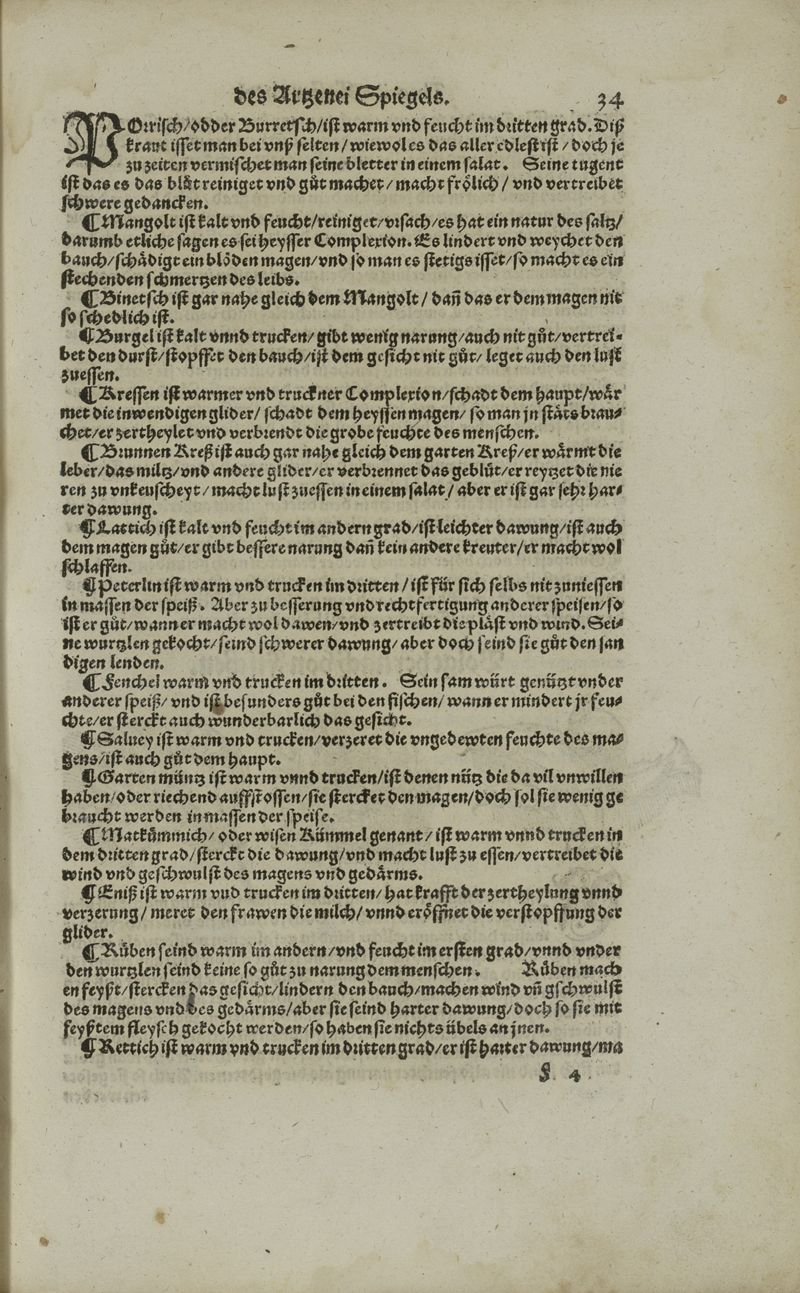 des Artzenei Spiegels. 34
BOrrisch/odder Burretsch/ist warm vnd feucht im dritten grad. Diß
kraut isset man bei vnß selten/wiewol es das aller edlest ist/doch je
zu zeiten vermischet man seine bletter in einem salat. Seine tugent
ist das es das blůt reiniget vnd gůt machet/macht frölich/vnd vertreibet
schwere gedancken.
¶Mangolt ist kalt vnd feucht/reiniget/vrsach/es hat ein natur des saltz/
darumb etliche sagen es sei heysser Complexion. Es lindert vnd weychet den
bauch/schädigt ein blöden magen/vnd so man es stetigs isset/so macht es ein
stechenden schmertzen des leibs.
¶Binetsch ist gar nahe gleich dem Mangolt/dañ das er dem magen nit
so schedlich ist.
¶Burgel ist kalt vnnd trucken/gibt wenig narung/auch nit gůt/vertrei-
bet den durst/stopffet den bauch/ist dem gesicht nit gůt/leget auch den lust
zuessen.
¶Kressen ist warmer vnd truckner Complexion/schadt dem haupt/wär
met die inwendigen glider/schadt dem heyssen magen/so man jn stäts brau-
chet/er zertheylet vnd verbrendt die grobe feuchte des menschen.
¶Brunnen Kreß ist auch gar nahe gleich dem garten Kreß/er wärmt die
leber/das miltz/vnd andere glider/er verbrennet das geblůt/er reytzet die nie
ren zu vnkeuscheyt/macht lust zuessen in einem salat/aber er ist gar sehr har-
ter dawung.
¶Lattich ist kalt vnd feucht im andern grad/ist leichter dawung/ist auch
dem magen gůt/er gibt bessere narung dañ kein andere kreuter/er macht wol
schlaffen.
¶Peterlin ist warm vnd trucken im dritten/ist für sich selbs nit zuniessen
in massen der speiß. Aber zu besserung vnd rechtfertigung anderer speisen/so
ist er gůt/wann er macht wol dawen/vnd zertreibt die pläst vnd wind. Sei-
ne wurtzlen gekocht/seind schwerer dawung/aber doch seind sie gůt den san
digen lenden.
¶Fenchel warm vnd trucken im dritten. Sein sam würt genützt vnder
anderer speiß/vnd ist besunders gůt bei den fischen/wann er mindert jr feu-
chte/er sterckt auch wunderbarlich das gesicht.
¶Saluey ist warm vnd trucken/verzeret die vngedewten feuchte des ma-
gens/ist auch gůt dem haupt.
¶Garten müntz ist warm vnnd trucken/ist denen nütz die da vil vnwillen
haben/oder riechend auffstossen/sie stercket den magen/doch sol sie wenig ge
braucht werden in massen der speise.
¶Matkümmich/oder wisen Kümmel genant/ist warm vnnd trucken in
dem dritten grad/sterckt die dawung/vnd macht lust zu essen/vertreibet die
wind vnd geschwulst des magens vnd gedärms.
¶Eniß ist warm vnd trucken im dritten/hat krafft der zertheylung vnnd
verzerung/meret den frawen die milch/vnnd eröffnet die verstopffung der
glider.
¶Rüben seind warm im andern/vnd feucht im ersten grad/vnnd vnder
den wurtzlen seind keine so gůt zu narung dem menschen. Rüben mach
en feyßt/stercken das gesicht/lindern den bauch/machen wind vñ gschwulst
des magens vnd des gedärms/aber sie seind harter dawung/doch so sie mit
feyßtem fleysch gekocht werden/so haben sie nichts übels an jnen.
¶Rettich ist warm vnd trucken im dritten grad/er ist harter dawung/ma
F 4